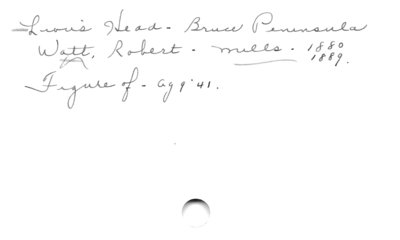 Lion's Head - Bruce Peninsula
Watt, Robert - mills - 1880
1889.
Figure of - ag 9 '41.